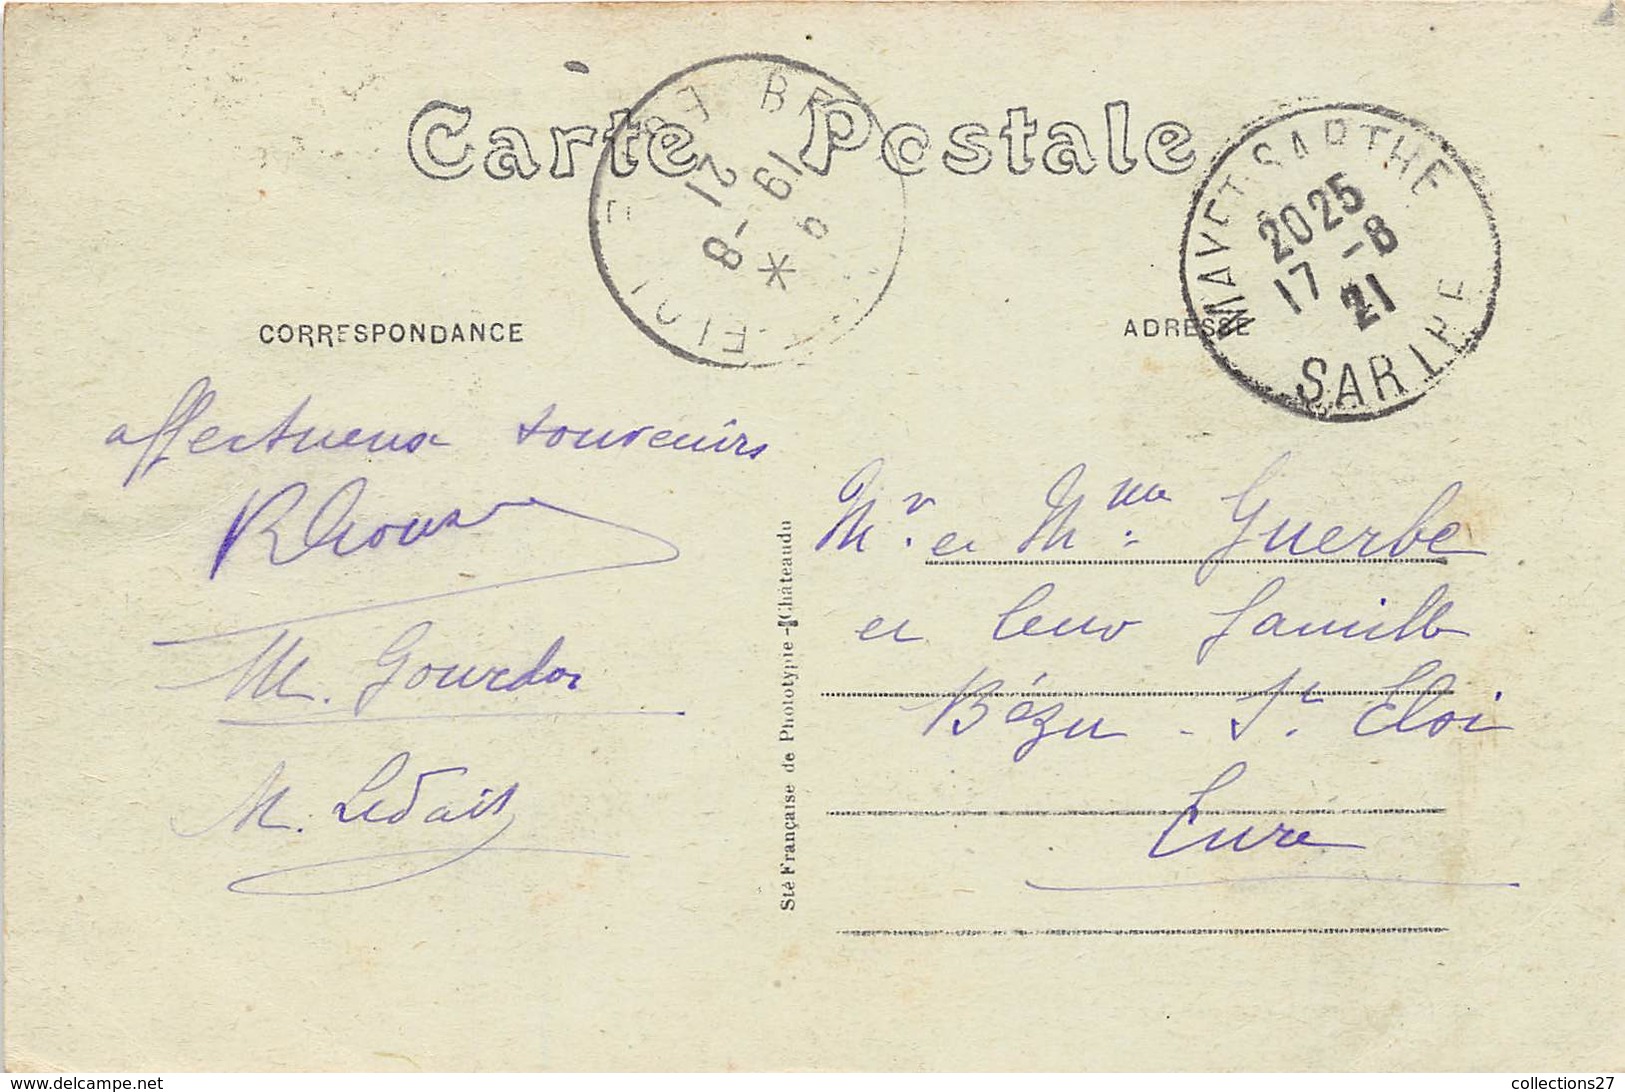 Carte Postale
MAYET-SARTHE
2025
17 -8
21
SARTHE
19 -8
21
CORRESPONDANCE
ADRESSE
affectueux souvenirs
M. Gourdor
M. Ledait
Sté Française de Phototypie - Châteaudu
Mr. et Mme. Guerbe
et leur famille
Bézu - St. Eloi
Eure
www.delcampe.net
collections27